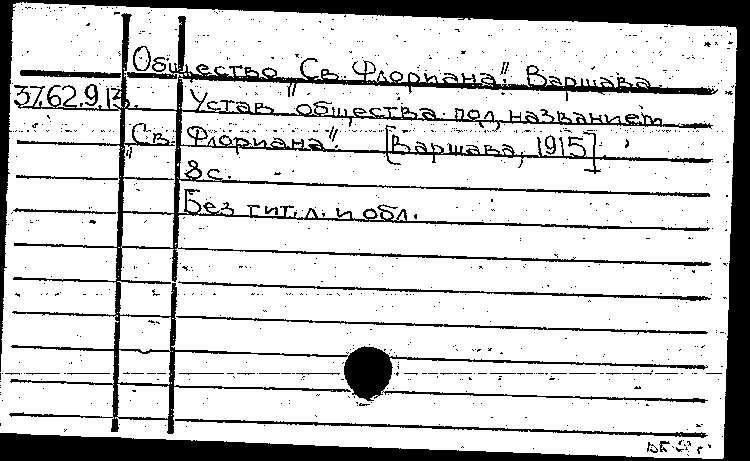 Общество „Св. Флориана". Варшава.
37.62.9.13. Устав общества под названием
„Св. Флориана". [Варшава, 1915].
8 с.
Без тит. л. и обл.